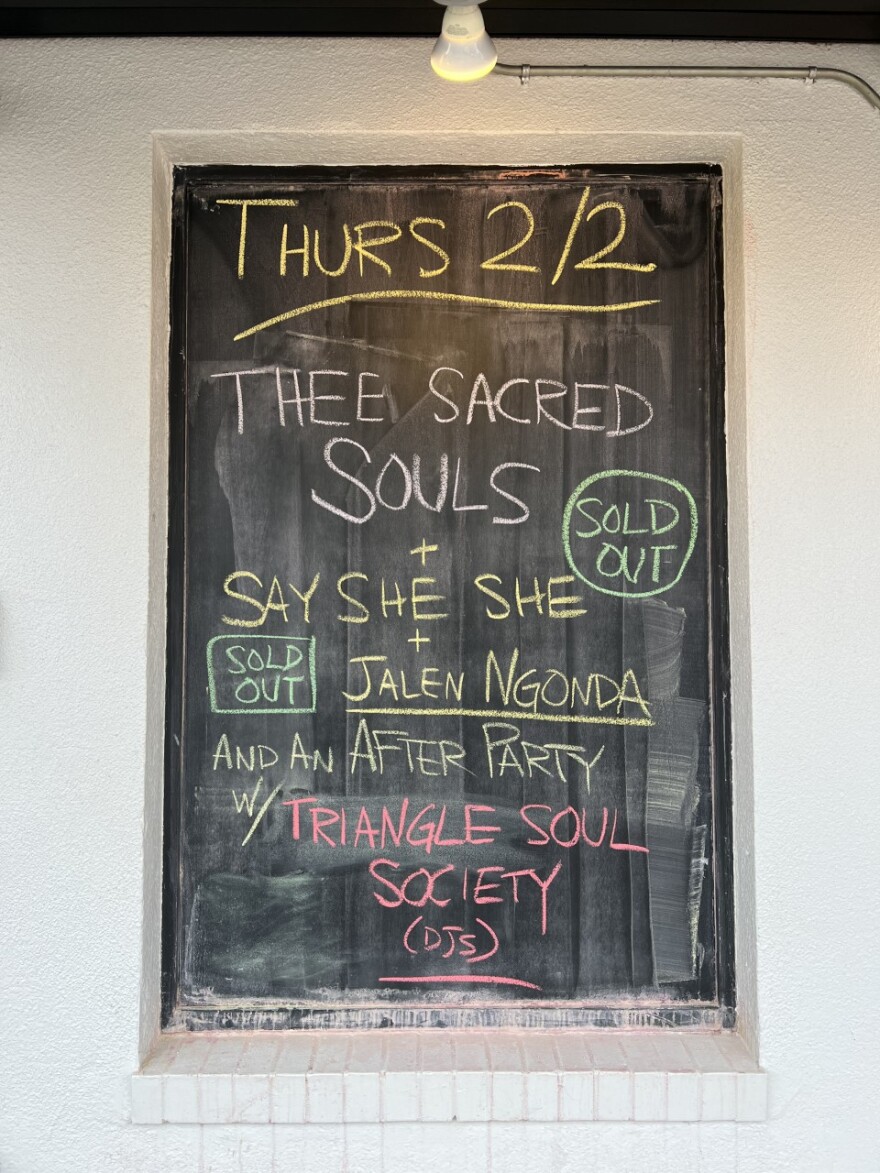 THURS 2/2
THEE SACRED
SOULS
SOLD
OUT
+
SAY SHE SHE
+
SOLD
OUT
JALEN NGONDA
AND AN AFTER PARTY
W/ TRIANGLE SOUL
SOCIETY
(DJs)